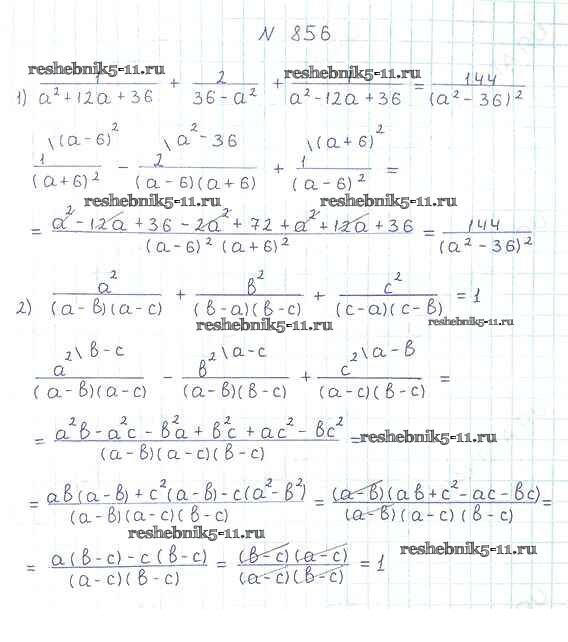 N 856
reshebnik5-11.ru
1) 1/(a²+12a+36) + 2/(36-a²) + /(a²-12a+36) = 144/(a²-36)²
1\(a-6)²/(a+6)² - 2\a²-36/((a-6)(a+6)) + 1\(a+6)²/(a-6)² =
reshebnik5-11.ru reshebnik5-11.ru
= (a²-12a+36-2a²+72+a²+12a+36)/((a-6)²(a+6)²) = 144/(a²-36)²
2) a²/((a-в)(a-c)) + в²/((в-a)(в-c)) + c²/((c-a)(c-в)) = 1
reshebnik5-11.ru reshebnik5-11.ru
a²\в-c/((a-в)(a-c)) - в²\a-c/((a-в)(в-c)) + c²\a-в/((a-c)(в-c)) =
= (a²в-a²c-в²a+в²c+ac²-вc²)/((a-в)(a-c)(в-c)) = reshebnik5-11.ru
= (aв(a-в)+c²(a-в)-c(a²-в²))/((a-в)(a-c)(в-c)) = ((a-в)(aв+c²-ac-вc))/((a-в)(a-c)(в-c)) =
reshebnik5-11.ru
= (a(в-c)-c(в-c))/((a-c)(в-c)) = ((в-c)(a-c))/((a-c)(в-c)) = 1 reshebnik5-11.ru